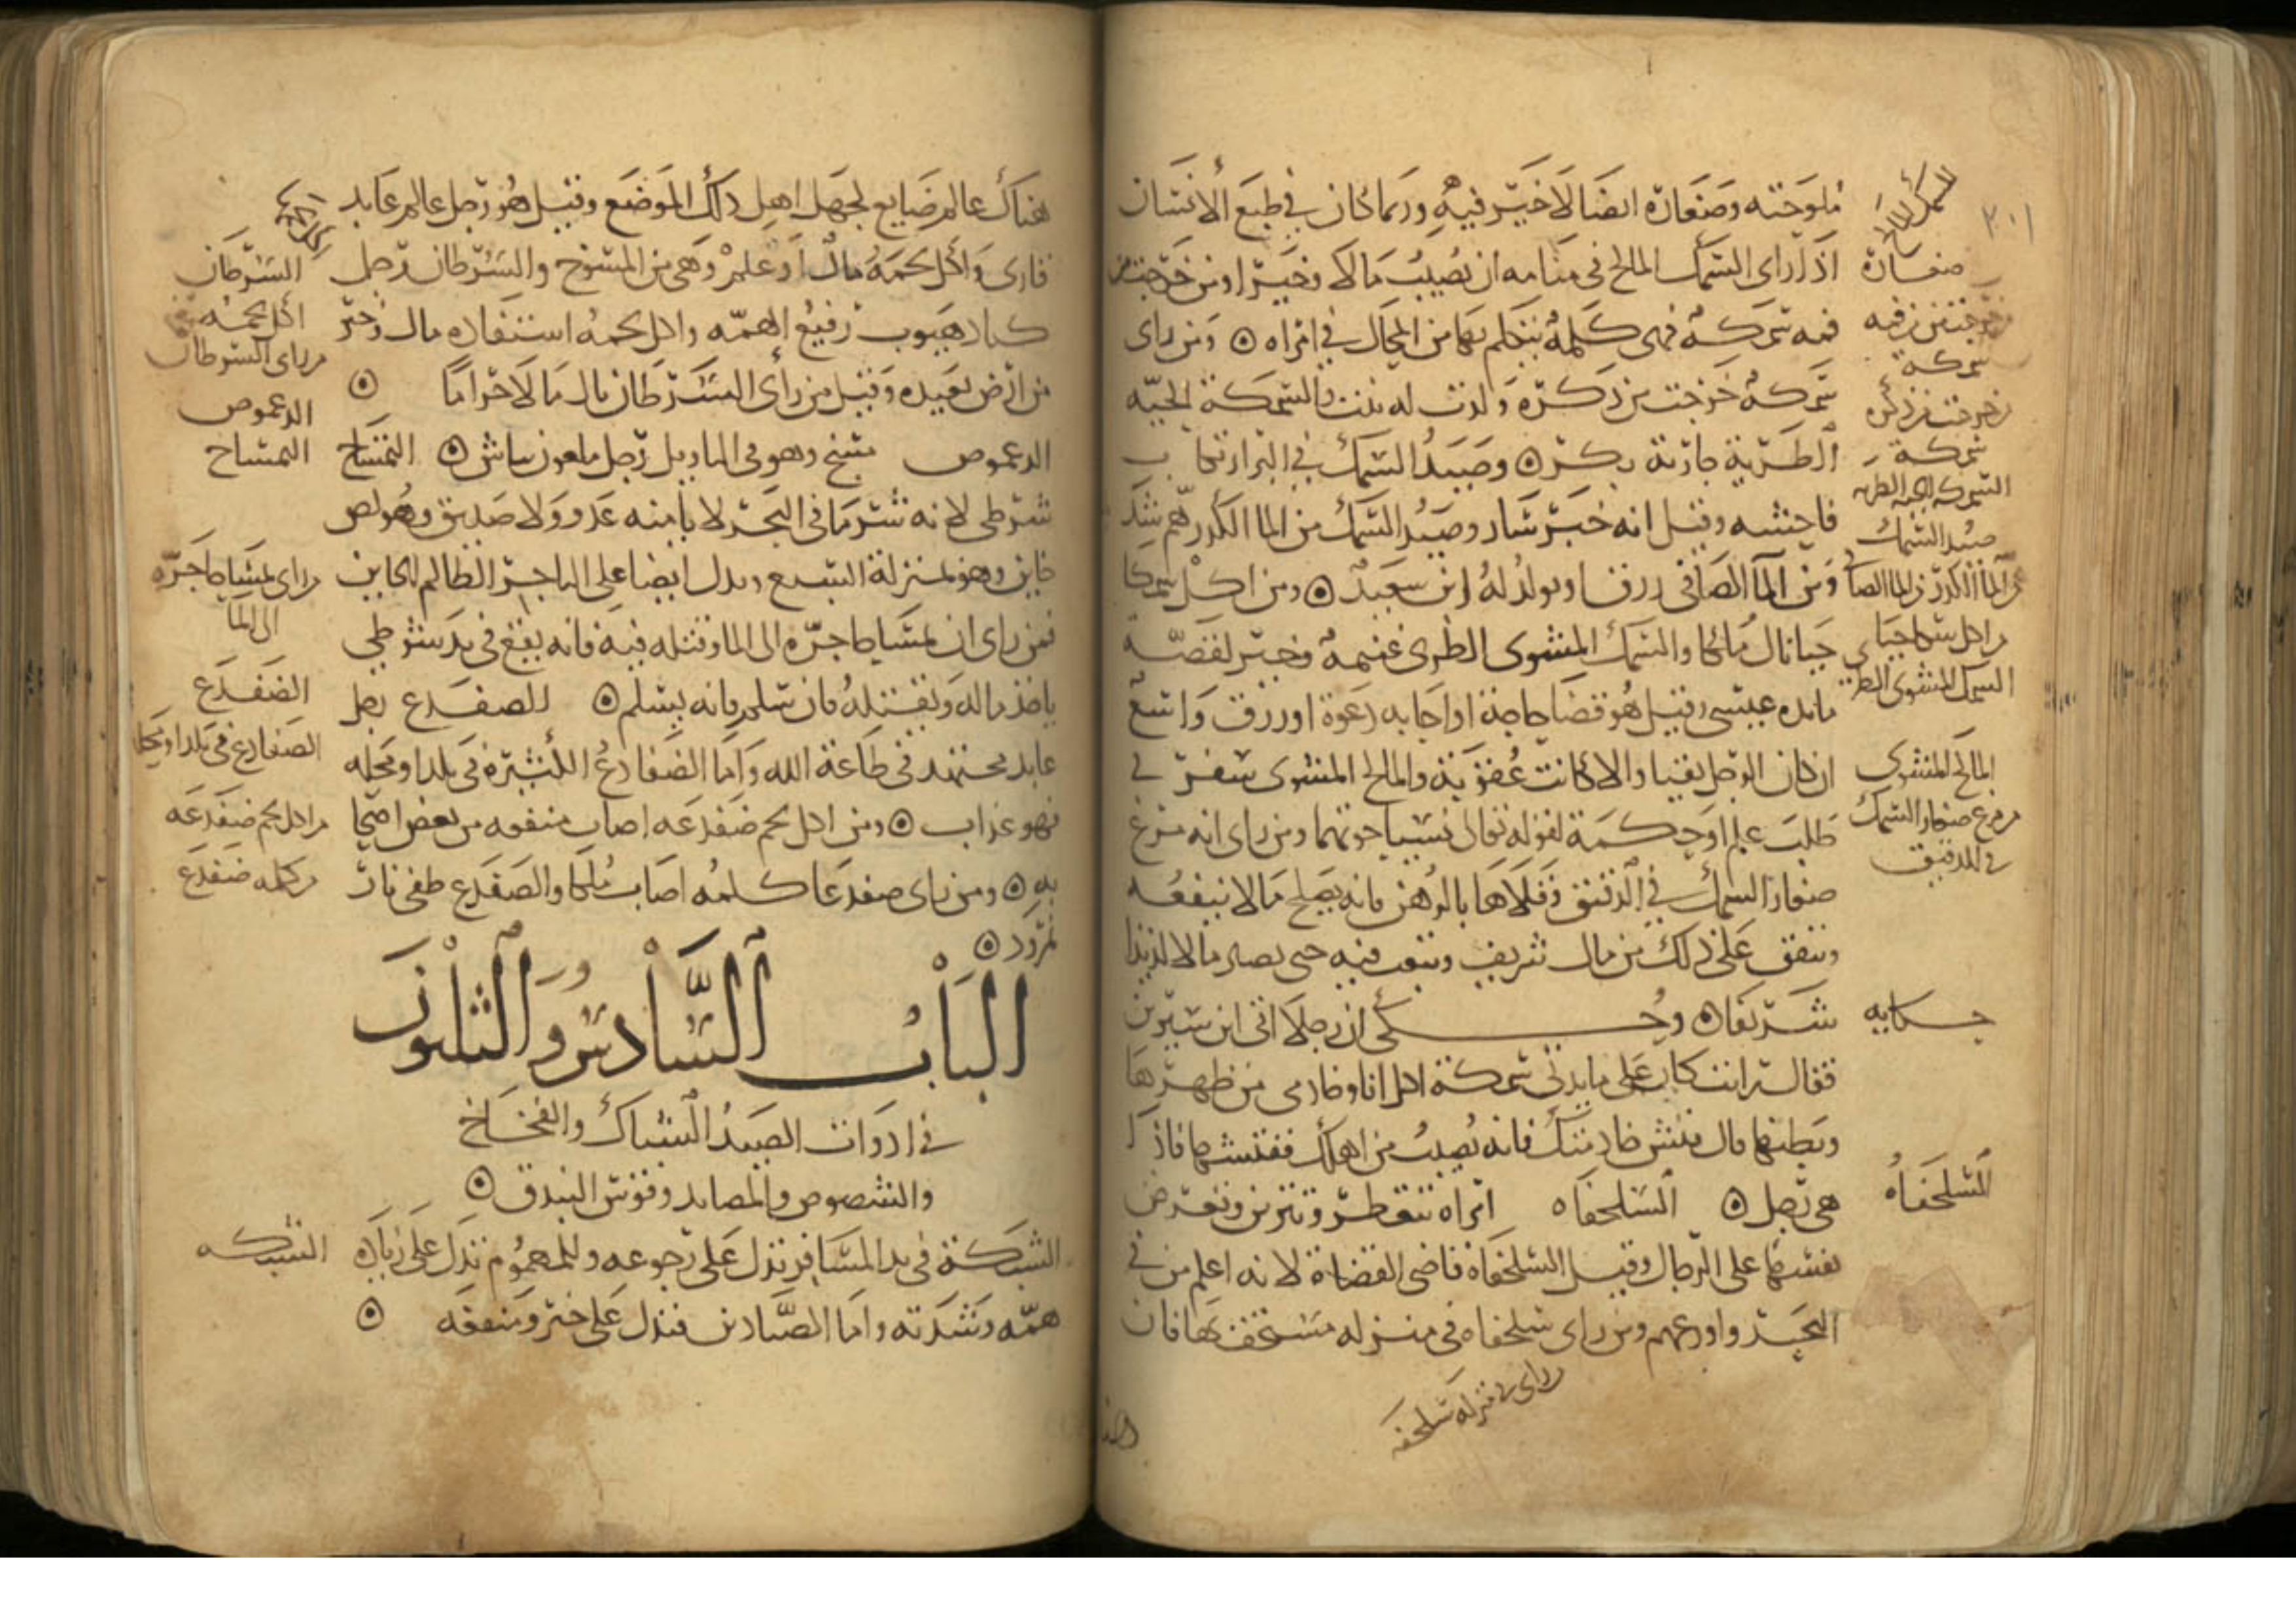 ملوحته وصغاره ايضا لا خير فيه وربما كان في طبع الانسان
اذا راى السمك المالح في منامه ان يصيب مالا وخيرا ومن خرجت من
فمه سمكة فهى كلمة يتكلم بها من المحال في امراه ۞ ومن راى
سمكة خرجت من ذكره ولدت له بنت والسمكة الحيه
الطرية جارية بكر ۞ وصيد السمك في البر ارتكاب
فاحشه وقيل انه خبر سار وصيد السمك من الما الكدر هم شديد
ومن الما الصافى رزق او يولد له ابن سعيد ۞ ومن اكل سمكا
حيا نال ملكا والسمك المشوى الطرى غنيمة وخير لقصة
مايده عيسى وقيل هو قضا حاجة او اجابه دعوة او رزق واسع
ان كان الرجل تقيا والا كانت عقوبة والمالح المشوى سفر في
طلب علم او حكمة لقوله تعالى نسيا حوتهما ومن راى انه مرغ
صغار السمك في الدقيق وقلاها بالدهن فانه يصلح مالا ينفعه
وينفق على ذلك من مال شريف ويتعب فيه حتى يصير مالا لذيذا
شريفا ۞ وحكى ان رجلا اتى ابن سيرين
فقال رايت كان على مايدتى سمكة اكل انا وخادمى من ظهرها
وبطنها قال فتش خادمك فانه يصيب من اهلك ففتشها فاذا
هى رجل ۞ السلحفاه امراه تتعطر وتتزين وتعرض
نفسها على الرجال وقيل السلحفاة قاضى القضاة لانه اعلم من في
البحر واورعهم ومن راى سلحفاه في منزله مستخف بها فان
٣٠١
السمك المالح
صغاره
من خرجت من فيه
سمكة
من خرجت من ذكره
سمكة
السمكه الحيه الطريه
صيد السمك
من الما الكدر من الما الصافى
من اكل سمكا حيا
السمك المشوى الطرى
المالح المشوى
من مرغ صغار السمك
في الدقيق
حكايه
السلحفاه
من راى في منزله سلحفه
هناك عالم ضايع لجهل اهل ذلك الموضع وقيل هو رجل عالم عابد
قارى واكل لحمه مال او علم وهى من المسوخ والسرطان رجل
كياد هيوب رفيع الهمه واكل لحمه استفاده مال وخير
من ارض بعيده وقيل من رأى السرطان نال مالا حراما ۞
الدعموص مسخ وهو في التاويل رجل ملعون نباش ۞ التمساح
شرطى لانه شر ما في البحر لا يأمنه عدو ولا صديق وهو لص
خاين وهو بمنزلة السبع ويدل ايضا على التاجر الظالم الخاين
فمن راى ان تمساحا جره الى الما وقتله فيه فانه يقع في يد شرطى
ياخذ ماله ويقتله فان سلم فانه يسلم ۞ الضفدع رجل
عابد مجتهد في طاعة الله واما الضفادع الكثيرة في بلد او محله
فهو عذاب ۞ ومن اكل لحم ضفدعه اصاب منفعه من بعض اصحابه ۞
ومن راى ضفدعا كلمه اصاب ملكا والضفدع طفى نار
نمرود ۞
الباب السادس والثلثون
في ادوات الصيد الشباك والفخاخ
والشصوص والمصايد وقوس البندق ۞
الشبكة في يد المسافر تدل على رجوعه وللمهموم تدل على زياده
همه وشدته واما الصيادين فتدل على خير ومنفعه ۞
السرطان
اكل لحمه
من راى السرطان
الدعموص
التمساح
من راى تمساحا جره
الى الما
الضفدع
الضفادع في بلد او محله
من اكل لحم ضفدعه
من كلمه ضفدع
الشبكه